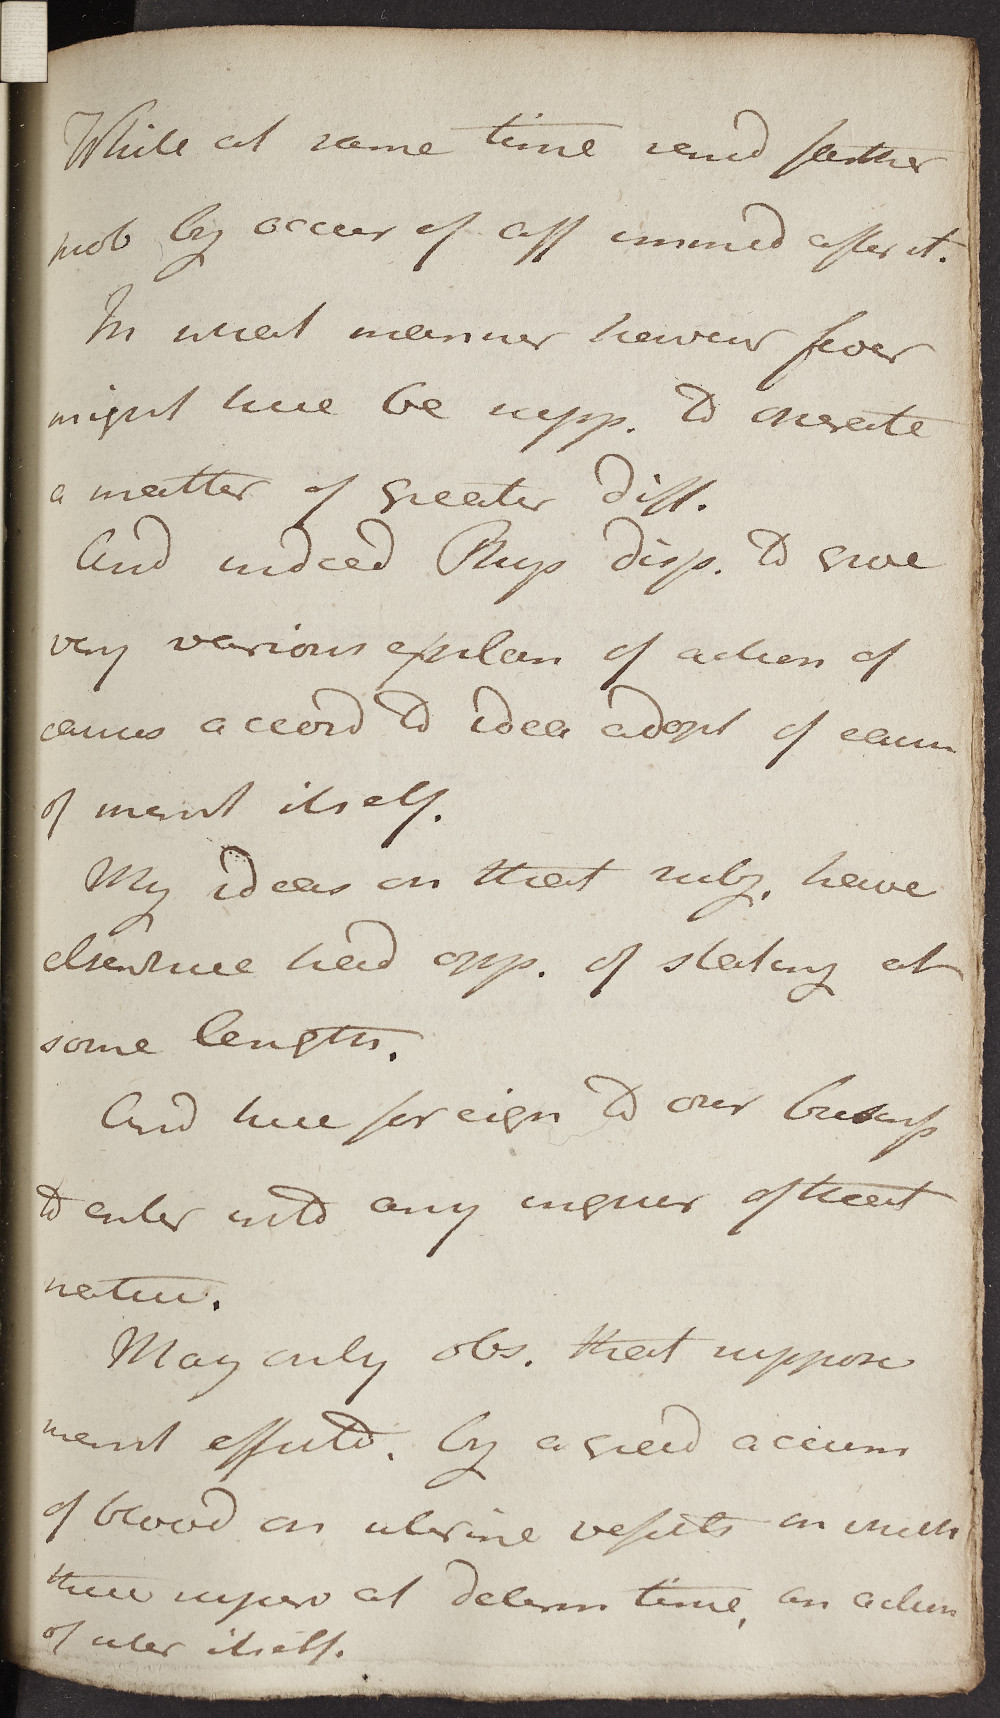 While at same time rend farther
prob by occur of aff immed after it.
In what manner however fever
might here be supp. to operate
a matter of greater diff.
And indeed Phys disp. to give
very various explan of action of
causes accord to idea adopt of caus
of menst itself.
My ideas on that subj. have
elsewhere had opp. of stating at
some length.
And here foreign to our busness
to enter into any inquir of that
nature.
May only obs. that suppose
menst effectd. by a grad accum
of blood on uterine vessels on which
there at determ time, an action
of uter itself.